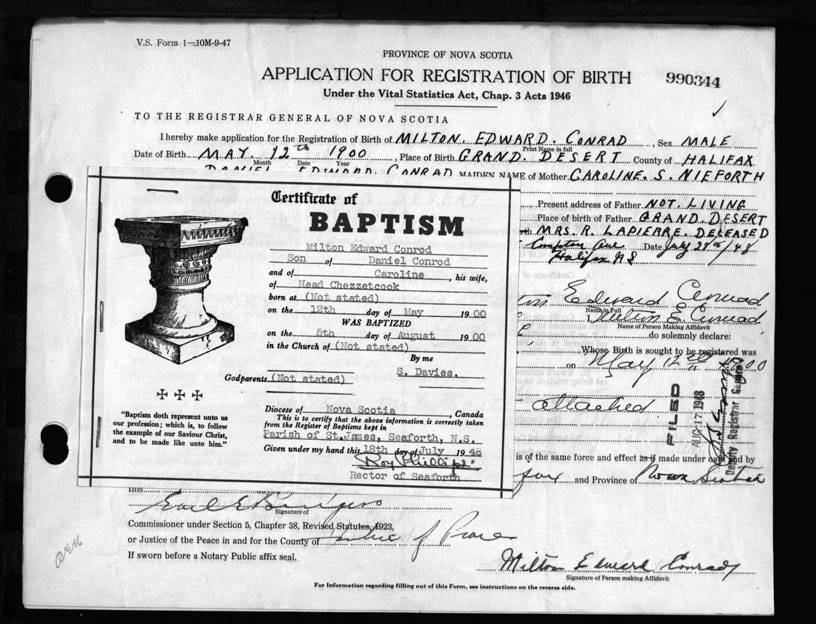 V.S. Form 1—10M-9-47
PROVINCE OF NOVA SCOTIA
APPLICATION FOR REGISTRATION OF BIRTH 990344
Under the Vital Statistics Act, Chap. 3 Acts 1946
TO THE REGISTRAR GENERAL OF NOVA SCOTIA
I hereby make application for the Registration of Birth of MILTON. EDWARD. CONRAD, Sex MALE
Print Name in full
Date of Birth MAY. 12th 1900, Place of Birth GRAND. DESERT County of HALIFAX
Month Date Year
DANIEL EDWARD. CONRAD MAIDEN NAME of Mother CAROLINE. S. NIEFORTH
Present address of Father NOT. LIVING
Place of birth of Father GRAND. DESERT
MRS. R. LAPIERRE. DECEASED
Compton Ave Date July 28th/48
Halifax N S
Edward Conrad
Name in Full
Milton E Conrad
Name of Person Making Affidavit
do solemnly declare:
Whose Birth is sought to be registered was
on May 12th 1900
attached
FILED
1948
Deputy Registrar General
is of the same force and effect as if made under oath and by
and Province of Nova Scotia
Certificate of
BAPTISM
Milton Edward Conrod
Son of Daniel Conrod
and of Caroline, his wife,
of Head Chezzetcook
born at (Not stated)
on the 12th day of May 1900
WAS BAPTIZED
on the 5th day of August 1900
in the Church of (Not stated)
By me
S. Davies.
Godparents (Not stated)
Diocese of Nova Scotia, Canada
This is to certify that the above information is correctly taken
from the Register of Baptisms kept in
Parish of St.James, Seaforth, N.S.
Given under my hand this 18th day of July 1948
Roy Phillips
Rector of Seaforth
"Baptism doth represent unto us
our profession; which is, to follow
the example of our Saviour Christ,
and to be made like unto him."
this
Signature of
Commissioner under Section 5, Chapter 38, Revised Statutes, 1923,
or Justice of the Peace in and for the County of Justice of Peace
If sworn before a Notary Public affix seal.
Milton Edward Conrad
Signature of Person making Affidavit
For Information regarding filling out of this Form, see instructions on the reverse side.